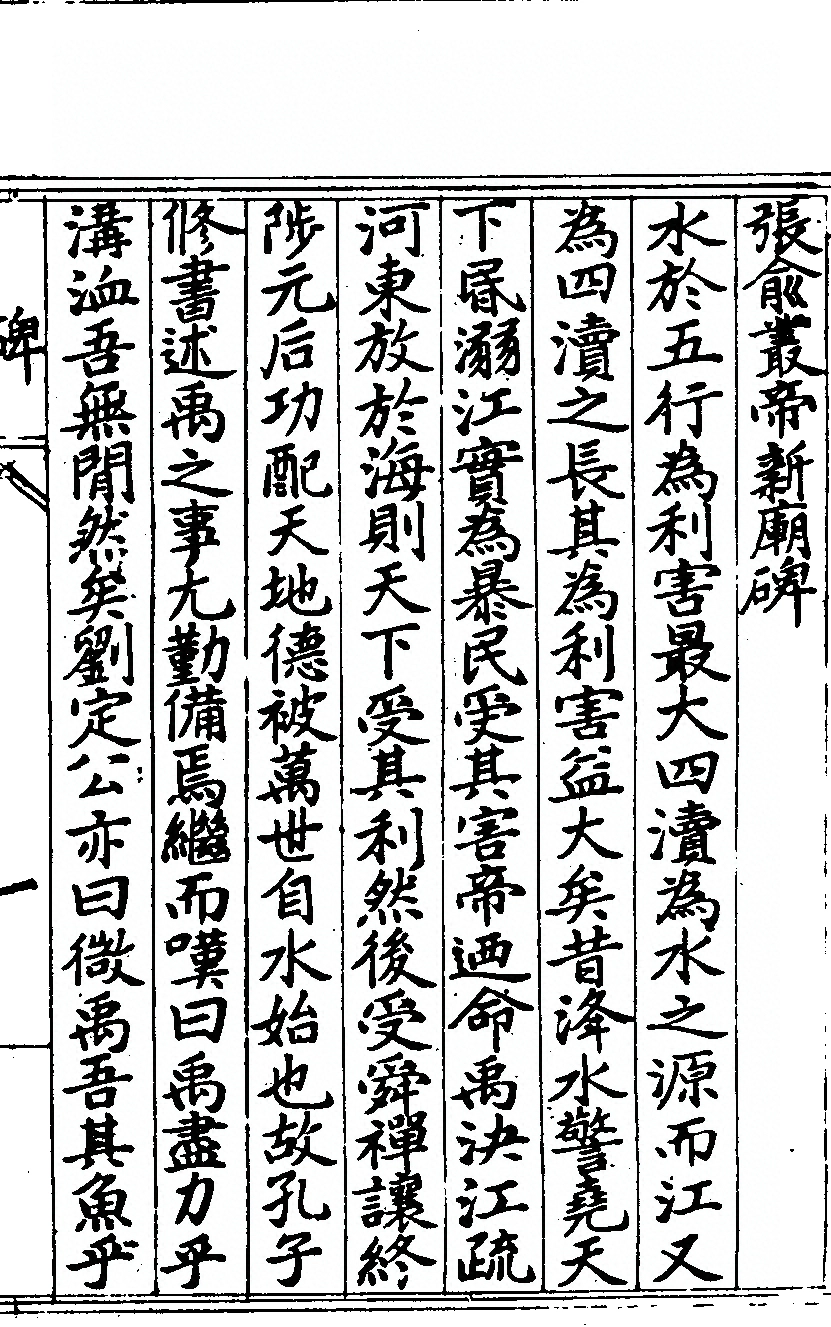 張俞叢帝新廟碑
水於五行為利害最大四瀆為水之源而江又
為四瀆之長其為利害益大矣昔洚水警堯天
下昬溺江實為暴民受其害帝迺命禹決江疏
河東放於海則天下受其利然後受舜禪讓終
陟元后功配天地德被萬世自水始也故孔子
修書述禹之事尤勤備焉繼而嘆曰禹盡力乎
溝洫吾無閒然矣劉定公亦曰微禹吾其魚乎
碑
一